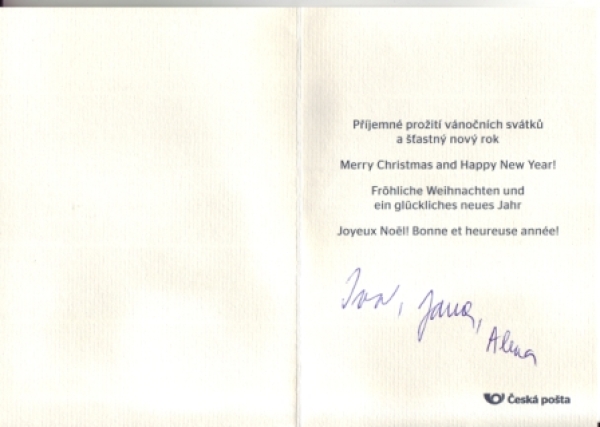 Příjemné prožití vánočních svátků
a šťastný nový rok
Merry Christmas and Happy New Year!
Fröhliche Weihnachten und
ein glückliches neues Jahr
Joyeux Noël! Bonne et heureuse année!
Ivan, Jana,
Alena
Česká pošta